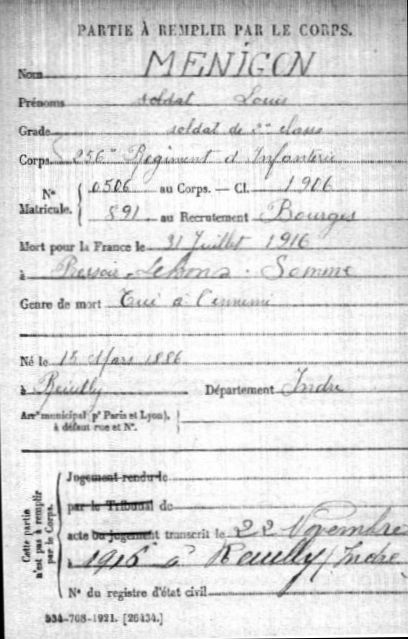 PARTIE À REMPLIR PAR LE CORPS.
Nom MENIGON
Prénoms soldat Louis
Grade soldat de 2me classe
Corps 256me Régiment d'Infanterie
Nº Matricule. { 0506 au Corps. — Cl. 1906
891 au Recrutement Bourges
Mort pour la France le 31 Juillet 1916
à Somme
Genre de mort Tué à l'ennemi
Né le 15 Mars 1886
à Reuilly Département Indre
Arrt municipal (pr Paris et Lyon), à défaut rue et Nº.
Cette partie n'est pas à remplir par le Corps.
Jugement rendu le
par le Tribunal de
acte ou jugement transcrit le 22 Novembre
à 1916 à Reuilly / Indre
Nº du registre d'état civil
534-708-1921. [26434.]